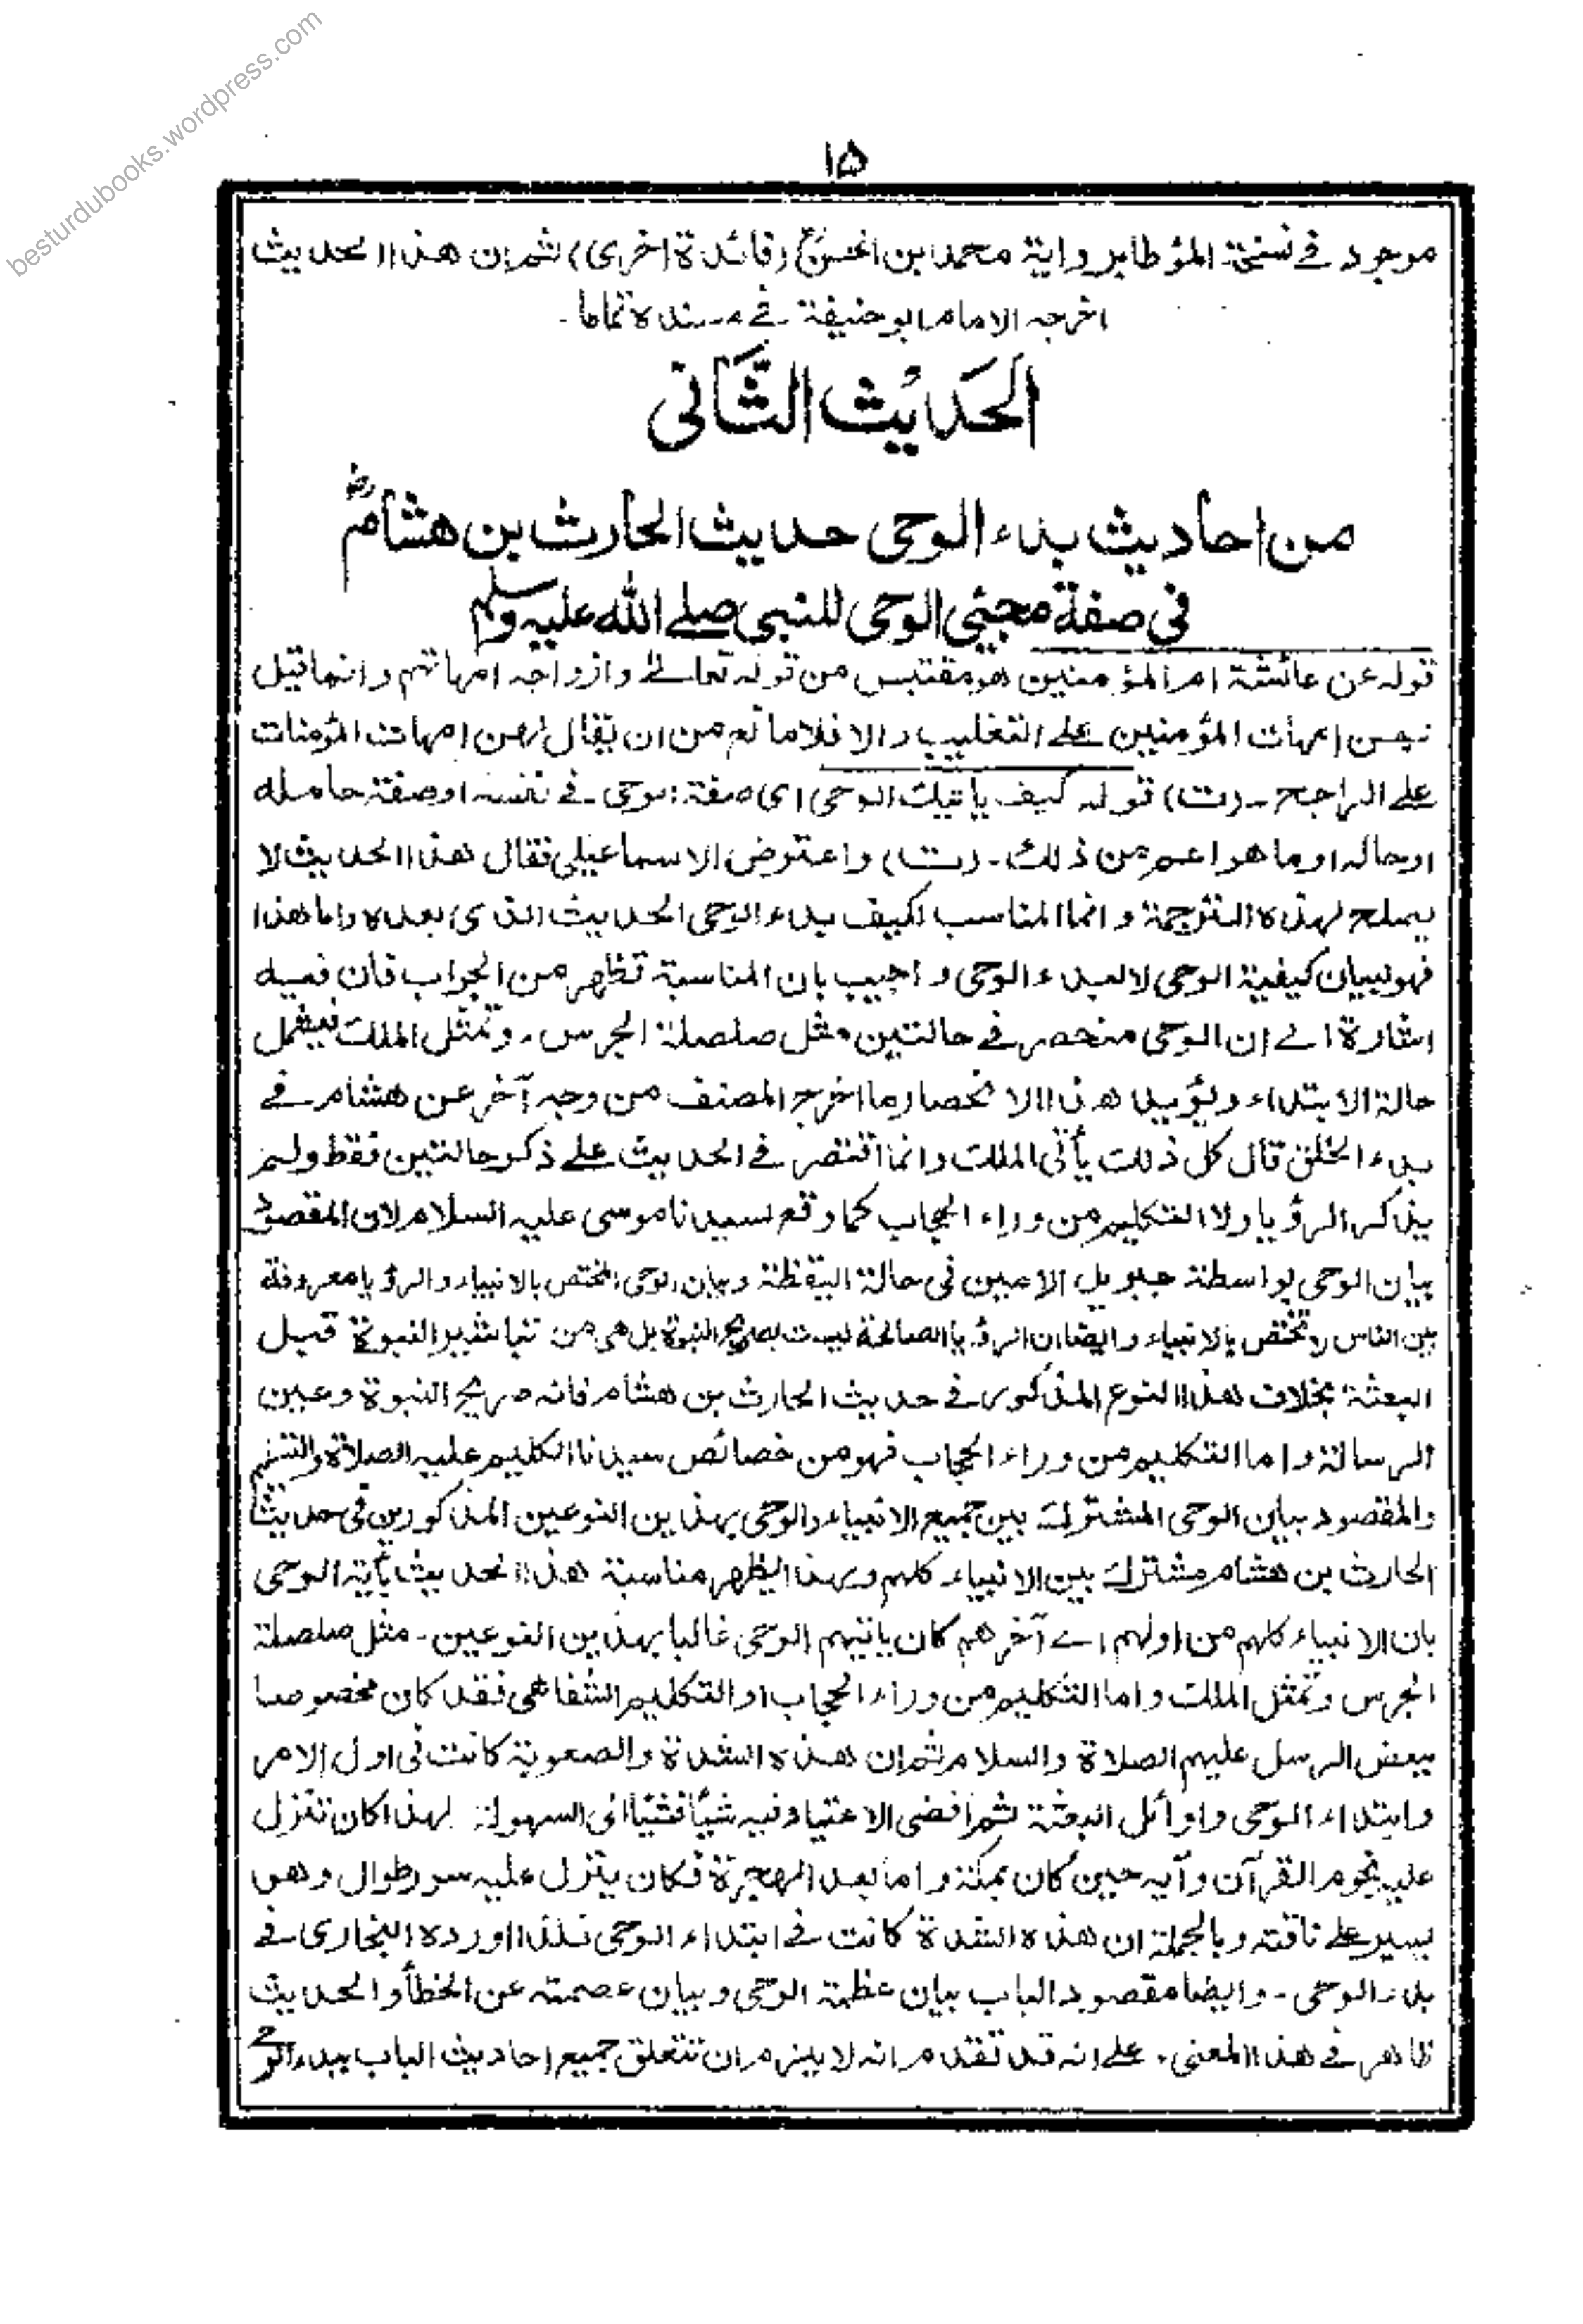 besturdubooks.wordpress.com
۱۵
موجود فی نسخة المؤطا بروایة محمد ابن الحسنؒ (فائدة اخری) ثم ان هذا الحدیث
اخرجه الامام ابو حنیفة فی مسنده تماما۔
الحَدیُث الثَّانی
من احادیث بدء الوحی حدیث الحارث بن هشامؓ
فی صفة مجیئی الوحی للنبی صلے الله علیه وسلم
قوله عن عائشة ام المؤمنین هو مقتبس من قوله تعالےٰ وازواجه امهاتهم وانما قیل
لهن امهات المؤمنین علے التغلیب والا فلا مانع من ان یقال لهن امهات المؤمنات
علے الراجح ۔ (ت) قوله کیف یاتیک الوحی ای صفة الوحی فی نفسه او صفة حامله
او حاله او ما هو اعم من ذلک ۔ (ت) واعترض الاسماعیلی فقال هذا الحدیث لا
یصلح لهذه الترجمة وانما المناسب لکیف بدء الوحی الحدیث الذی بعده واما هذا
فهو لبیان کیفیة الوحی لا لبدء الوحی واجیب بان المناسبة تظهر من الجواب فان فیه
اشارة الے ان الوحی منحصر فی حالتین مثل صلصلة الجرس۔ وتمثل الملک فیشمل
حالة الابتداء ویؤید هذا الانحصار ما اخرج المصنف من وجه آخر عن هشام فی
بدء الخلق قال کل ذلک یأتی الملک وانما اقتصر فی الحدیث علے ذکر حالتین فقط ولم
یذکر الرؤیا ولا التکلیم من وراء الحجاب کما وقع لسیدنا موسی علیه السلام لان المقصود
بیان الوحی بواسطة جبریل الامین فی حالة الیقظة وبیان الوحی المختص بالانبیاء والرؤیا معروفة
بین الناس لا تختص بالانبیاء وایضا ان الرؤیا الصالحة لیست بصریح النبوة بل هی من تباشیر النبوة قبل
البعثة بخلاف هذا النوع المذکور فی حدیث الحارث بن هشام فانه صریح النبوة وعین
الرسالة واما التکلیم من وراء الحجاب فهو من خصائص سیدنا الکلیم علیه الصلاة والتسلیم
والمقصود بیان الوحی المشترک بین جمیع الانبیاء والوحی بهذین النوعین المذکورین فی حدیث
الحارث بن هشام مشترک بین الانبیاء کلهم وبهذا یظهر مناسبة هذا الحدیث بآیة الوحی
بان الانبیاء کلهم من اولهم الے آخرهم کان یاتیهم الوحی غالبا بهذین النوعین ۔ مثل صلصلة
الجرس وتمثل الملک واما التکلیم من وراء الحجاب او التکلیم الشفاهی فقد کان مخصوصا
ببعض الرسل علیهم الصلاة والسلام ثم ان هذه الشدة والصعوبة کانت فی اول الامر
وابتداء الوحی واوائل البعثة ثم افضی الاعتیاد فیه شیأ فشیأ الی السهولة لهذا کان تنزل
علیه نجوم القرآن وآیه حین کان بمکة واما بعد الهجرة فکان ینزل علیه سور طوال وهو
یسیر علے ناقته وبالجملة ان هذه الشدة کانت فی ابتداء الوحی فلذا اورده البخاری فی
بدء الوحی ۔ وایضا مقصود الباب بیان عظمة الوحی وبیان عصمته عن الخطأ والحدیث
ظاهر فی هذا المعنی۔ علے انه قد تقدم انه لا یلزم ان تتعلق جمیع احادیث الباب ببدء الوحی